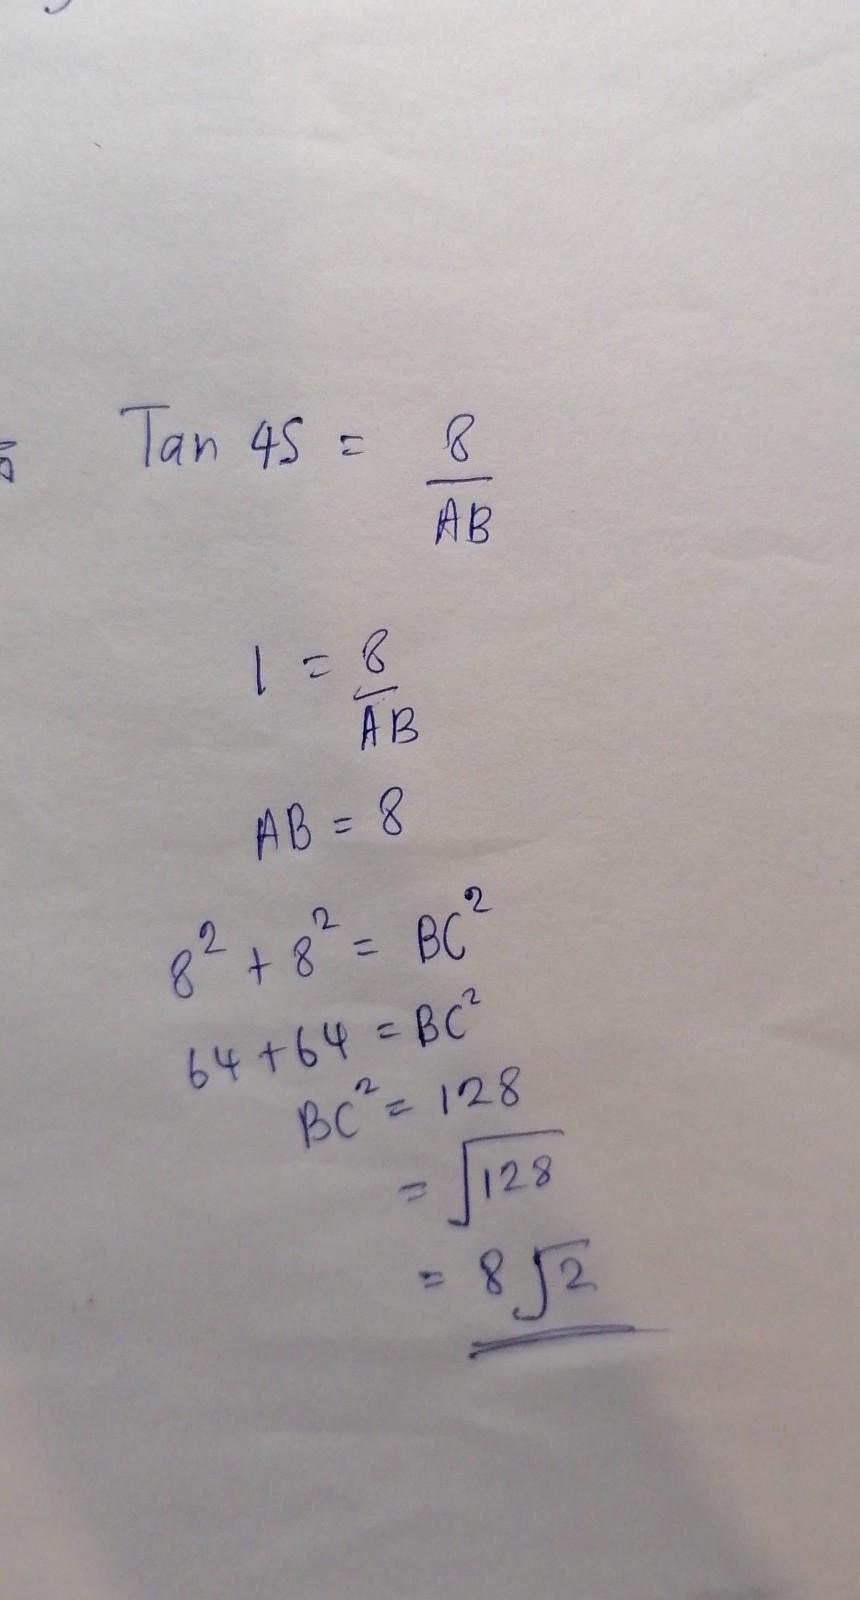 Tan 45 = 8/AB
1 = 8/AB
AB = 8
8² + 8² = BC²
64 + 64 = BC²
BC² = 128
= √128
= 8√2